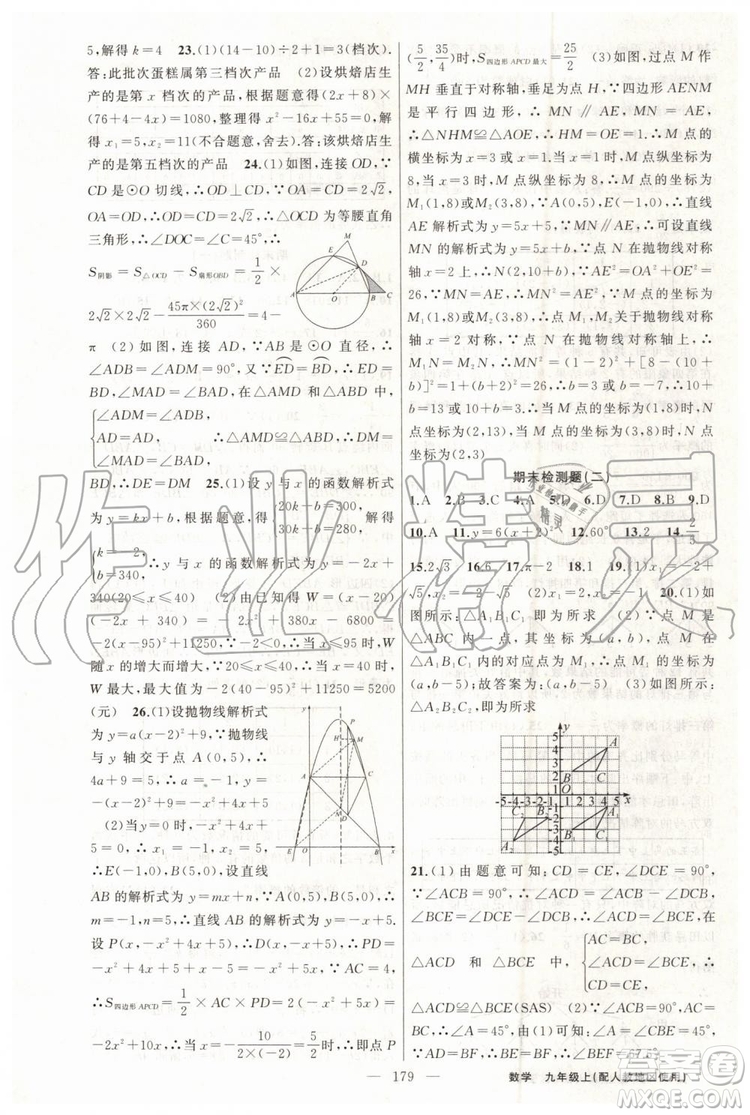 5,解得 k=4　23.(1)(14-10)÷2+1=3(档次).
答:此批次蛋糕属第三档次产品　(2)设烘焙店
生产的是第 x 档次的产品,根据题意得(2x+8)×
(76+4-4x)=1080,整理得 x²-16x+55=0,解
得 x₁=5,x₂=11(不合题意,舍去).答:该烘焙店
生产的是第五档次的产品　24.(1)如图,连接 OD,∵
CD 是⊙O 切线,∴OD⊥CD,∵OA=CD=2√2,
OA=OD,∴OD=CD=2√2,∴△OCD 为等腰直角
三角形,∴∠DOC=∠C=45°,∴
S阴影=S△OCD-S扇形OBD=1/2×
2√2×2√2-45π×(2√2)²/360=4-
π　(2)如图,连接 AD,∵AB 是⊙O 直径,∴
∠ADB=∠ADM=90°,又∵ED=BD,∴ED=
BD,∠MAD=∠BAD,在△AMD 和△ABD 中,
{∠ADM=∠ADB,
AD=AD,
∠MAD=∠BAD, ∴△AMD≌△ABD,∴DM=
BD,∴DE=DM　25.(1)设 y 与 x 的函数解析式
为 y=kx+b,根据题意,得{20k+b=300,
30k+b=280, 解得
{k=-2,
b=340, ∴y 与 x 的函数解析式为 y=-2x+
340(20≤x≤40)　(2)由已知得 W=(x-20)
(-2x+340)=-2x²+380x-6800=
-2(x-95)²+11250,∵-2<0,∴当 x≤95 时,W
随 x 的增大而增大,∵20≤x≤40,∴当 x=40 时,
W 最大,最大值为-2(40-95)²+11250=5200
(元)　26.(1)设抛物线解析式
为 y=a(x-2)²+9,∵抛物线
与 y 轴交于点 A(0,5),∴
4a+9=5,∴a=-1,∴y=
-(x-2)²+9=-x²+4x+5
(2)当 y=0 时,-x²+4x+5
=0,∴x₁=-1,x₂=5,
∴E(-1,0),B(5,0),设直线
AB 的解析式为 y=mx+n,∵A(0,5),B(5,0),∴
m=-1,n=5,∴直线 AB 的解析式为 y=-x+5.
设 P(x,-x²+4x+5),∴D(x,-x+5),∴PD=
-x²+4x+5+x-5=-x²+5x,∵AC=4,
∴S四边形APCD=1/2×AC×PD=2(-x²+5x)=
-2x²+10x,∴当 x=-10/(2×(-2))=5/2时,即点 P
(5/2,35/4)时,S四边形APCD最大=25/2　(3)如图,过点 M 作
MH 垂直于对称轴,垂足为点 H,∵四边形 AENM
是平行四边形,∴MN∥AE,MN=AE,
∴△NHM≌△AOE,∴HM=OE=1,∴M 点的
横坐标为 x=3 或 x=1,当 x=1 时,M 点纵坐标为
8,当 x=3 时,M 点纵坐标为 8,∴M 点的坐标为
M₁(1,8)或 M₂(3,8),∵A(0,5),E(-1,0),∴直线
AE 解析式为 y=5x+5,∵MN∥AE,∴可设直线
MN 的解析式为 y=5x+b,∵点 N 在抛物线对称
轴 x=2 上,∴N(2,10+b),∵AE²=OA²+OE²=
26,∵MN=AE,∴MN²=AE²,∵M 点的坐标为
M₁(1,8)或 M₂(3,8),∴点 M₁,M₂ 关于抛物线对称
轴 x=2 对称,∵点 N 在抛物线对称轴上,∴
M₁N=M₂N,∴MN²=(1-2)²+[8-(10+
b)]²=1+(b+2)²=26,∴b=3 或 b=-7,∴10+
b=13 或 10+b=3,∴当 M 点的坐标为(1,8)时,N
点坐标为(2,13),当 M 点的坐标为(3,8)时,N 点
坐标为(2,3)
期末检测题(二)
1.A　2.B　3.C　4.A　5.　6.D　7.D　8.B　9.D
10.A　11.y=6(x+2)²　12.60°　13.2　14.2/3
15.2√3　16.　17.π-2　18.1　19.(1)
(2)x₁=2,x₂=　20.(1)如
图所示:△A₁B₁C₁ 即为所求　(2)∵点 M
△A₁B₁C₁ 内的对应点为 M₁,∴点 M₁ 的坐标为
(a,b-5);故答案为:(a,b-5)　(3)如图所示:
△A₂B₂C₂,即为所求
21.(1)由题意可知:CD=CE,∠DCE=90°,
∵∠ACB=90°,∴∠ACD=∠ACB-∠DCB,
∠BCE=∠DCE-∠DCB,∴∠ACD=∠BCE,在
△ACD 和△BCE 中,{AC=BC,
∠ACD=∠BCE,
CD=CE, ∴
△ACD≌△BCE(SAS)　(2)∵∠ACB=90°,
AC=BC,∴∠A=45°,∵△ACD≌△BCE,
∴∠A=∠CBE=45°,AD=BE,∵AD=BF,∴
— 179 —　数学　九年级上(配人教地区使用)
作业精灵
答案圈